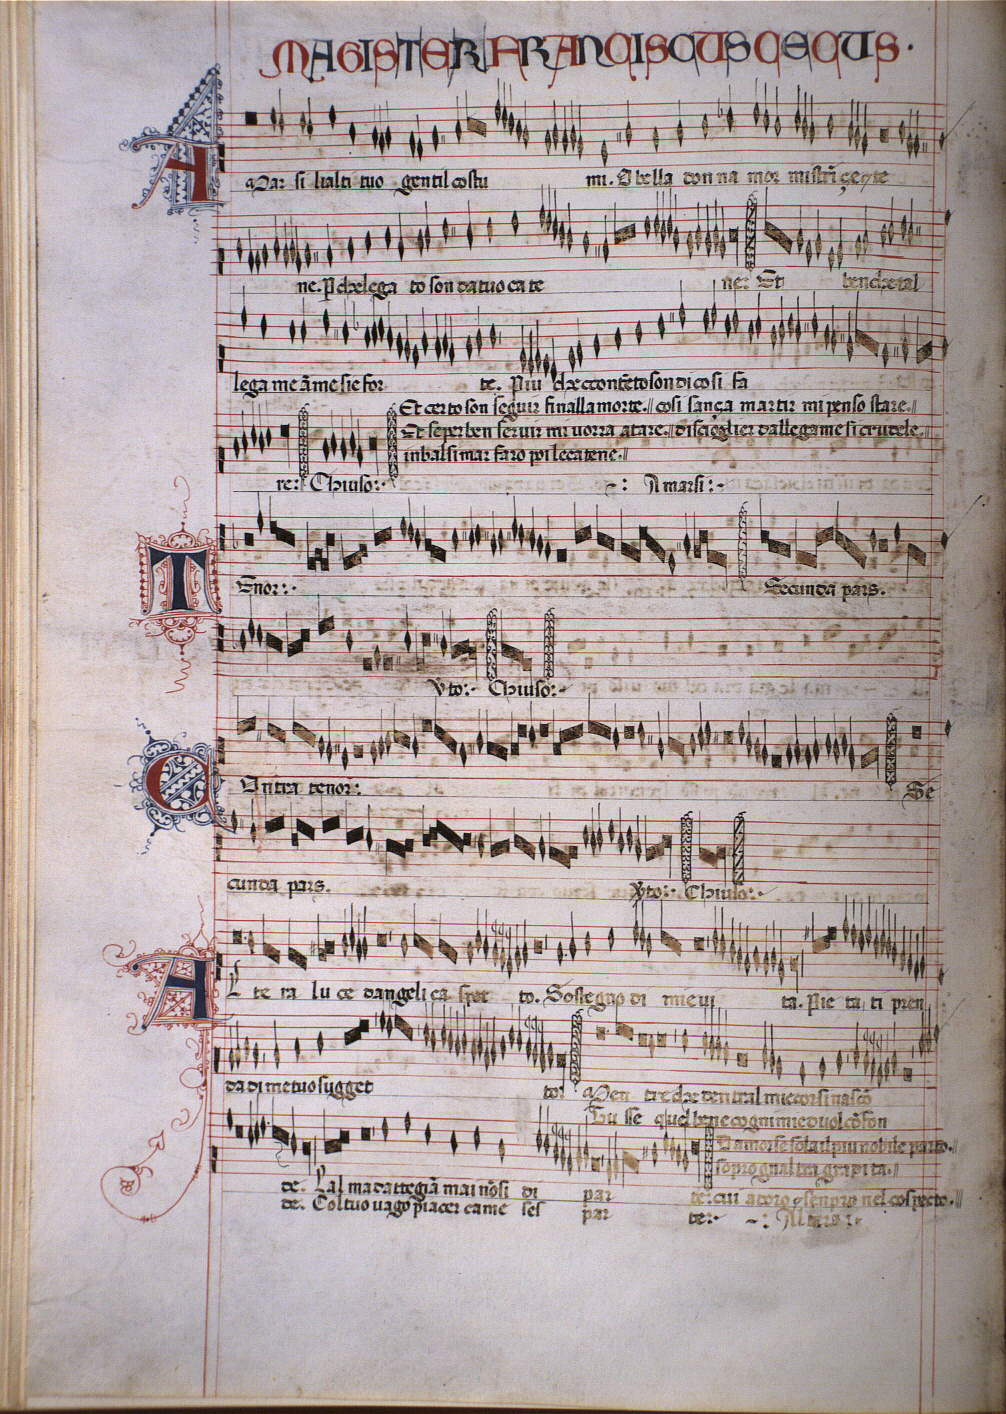 MAGISTER FRANCISCUS CECUS.
AMar si li alti tuo gentil costu mi. O bella don na
ne. P che lega to son da tuo ca te ne: Et ben che tal
lega me a me sie for te. Piu che contẽto son di cosi fa
Et certo son seguir fin alla morte. cosi sança martir mi penso stare.
Et se per ben servir mi vorra atare. discioglier da llegame si crudele.
inbalsimar faro poi le catene.
re: Chiuso: Amarsi:
TEnor: Secunda pars.
Vto: Chiuso:
COntra tenor: Se
cunda pars. Vto: Chiuso:
AL te ra lu ce d angeli ca spet to. Sostegno di mie vi ta. Pie ta ti pren
da di me tuo sugget to: Men tre che dentral mie cor si nasco
Tu sse quel bene
D amor se sola il piu nobile parto.
de. L al ma da tte gia mai nõ si di par te: cui adoro nel cospecto.
de. Col tuo vago piacer ca me ses par te: